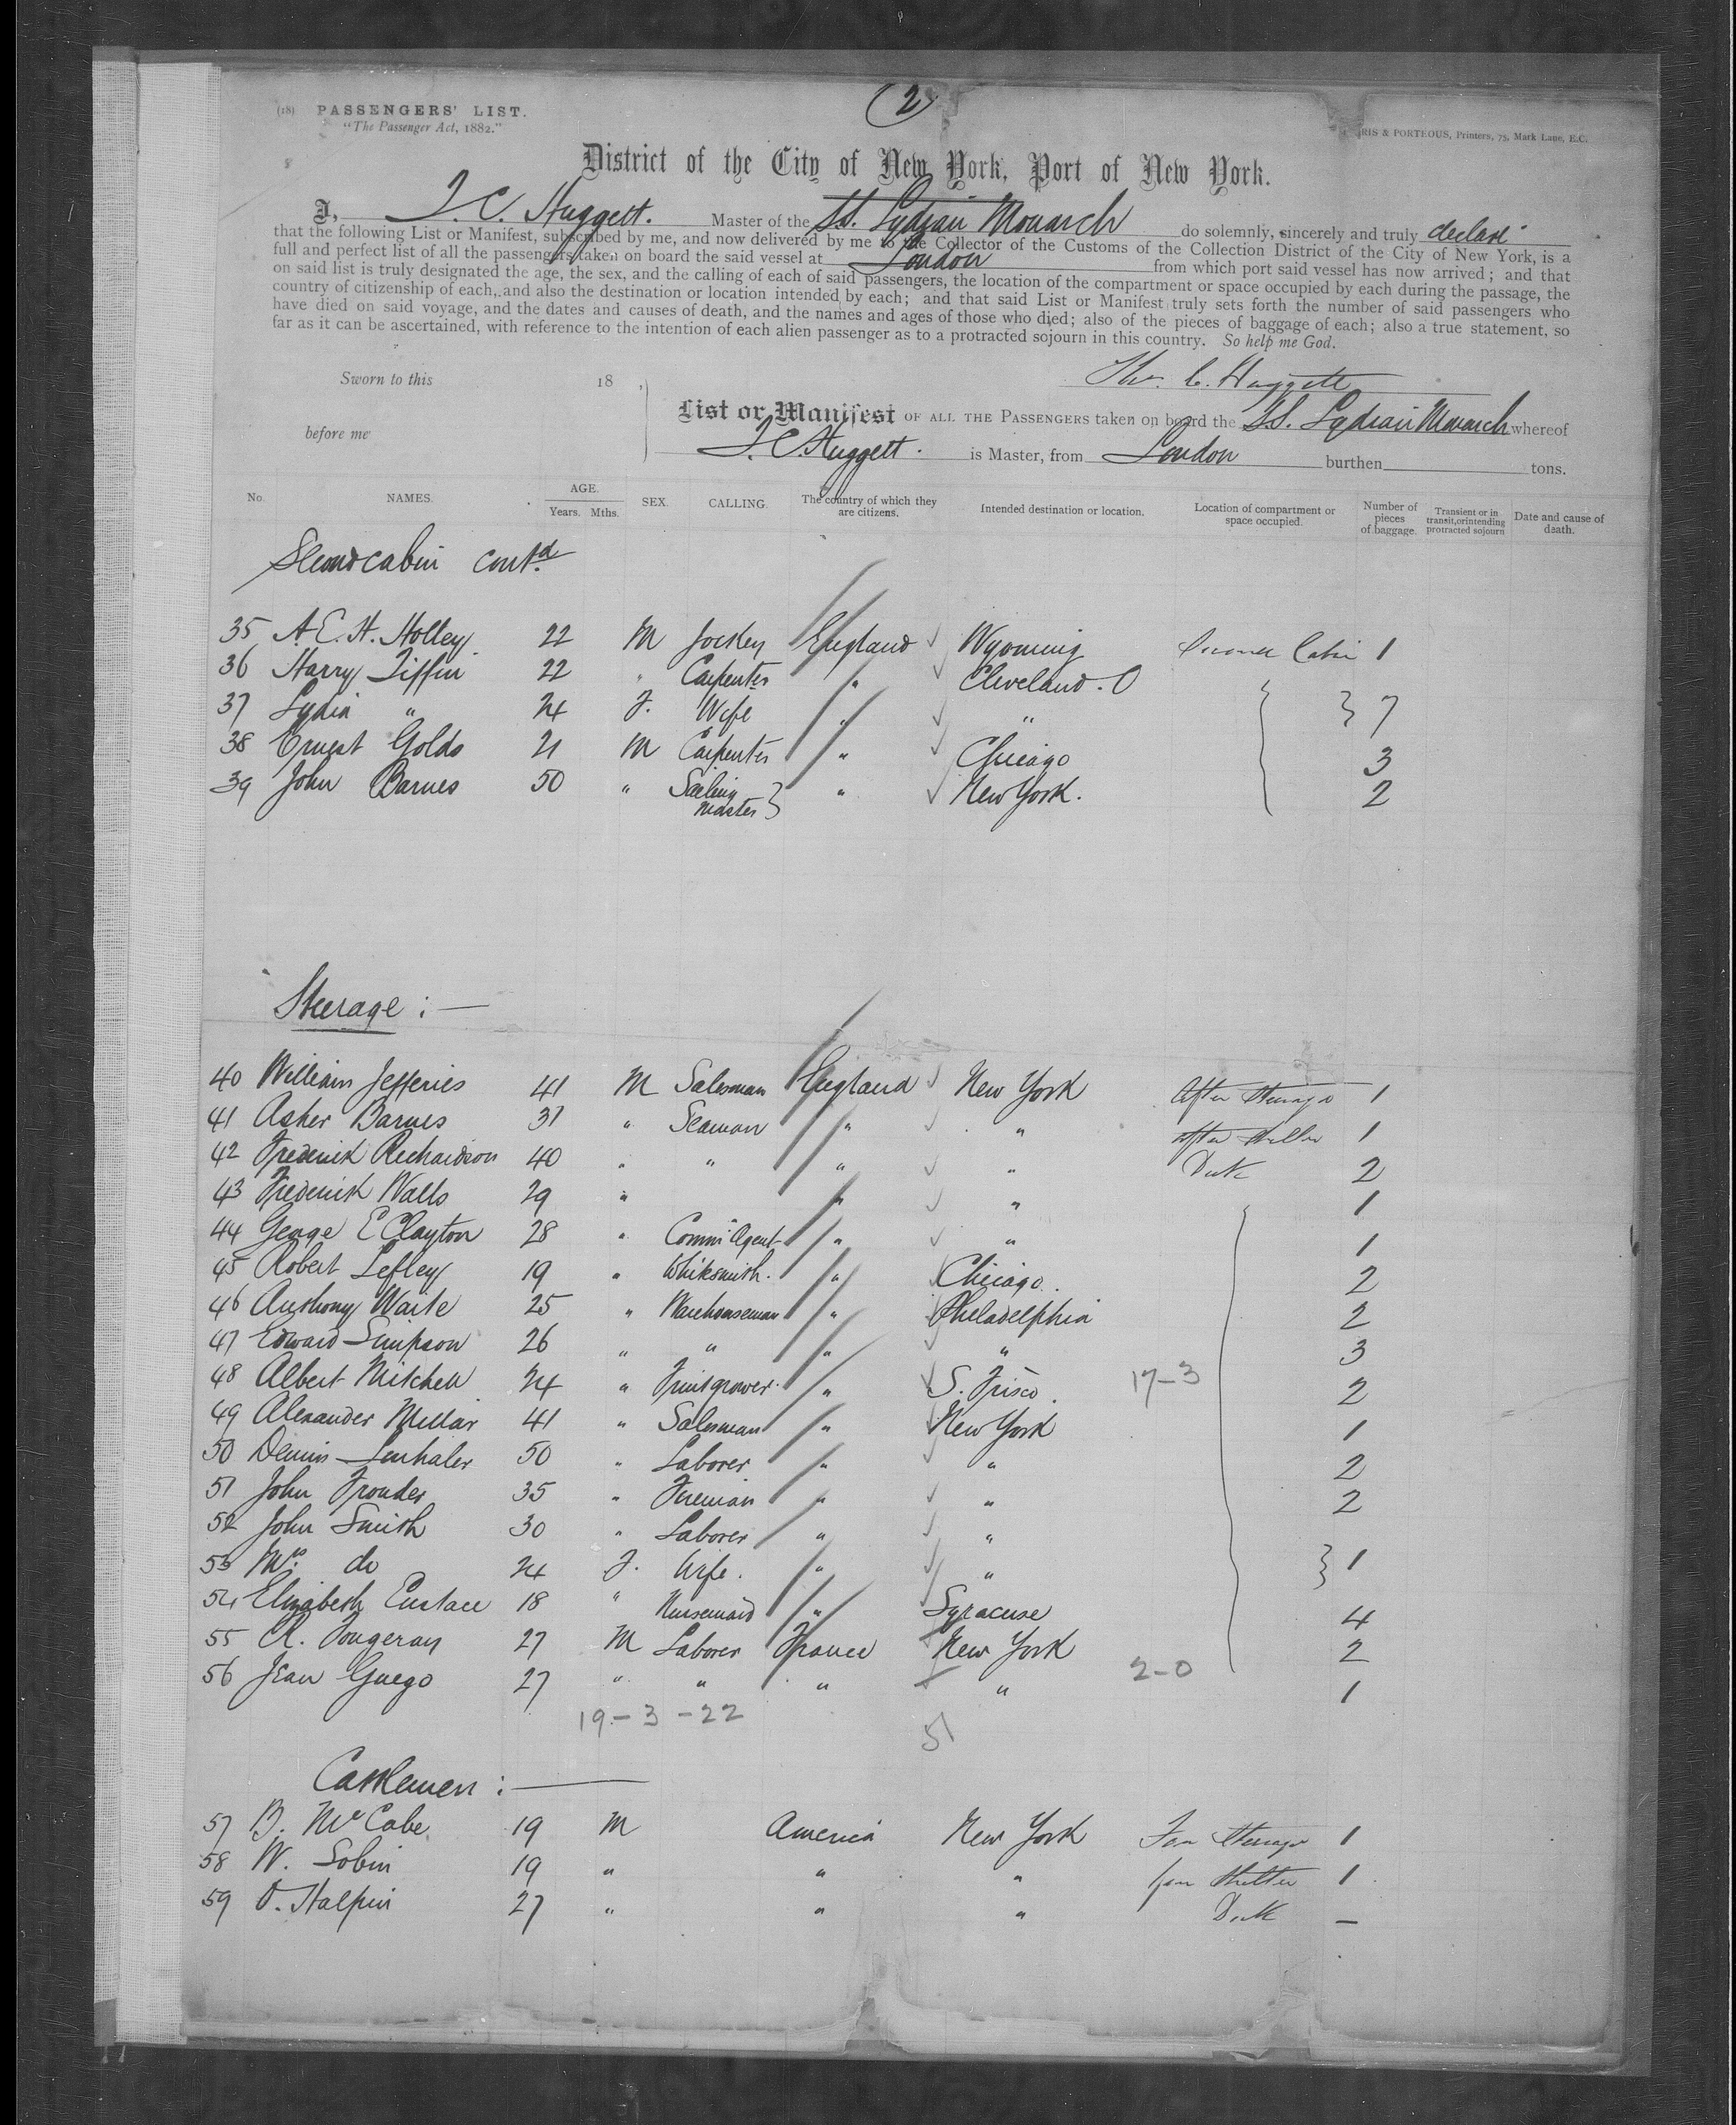 (2)
(18) PASSENGERS' LIST.
"The Passenger Act, 1882."
RIS & PORTEOUS, Printers, 75, Mark Lane, E.C.
District of the City of New York, Port of New York.
I, T. C. Huggett. Master of the SS. Lydian Monarch do solemnly, sincerely and truly declare
that the following List or Manifest, subscribed by me, and now delivered by me to the Collector of the Customs of the Collection District of the City of New York, is a
full and perfect list of all the passengers taken on board the said vessel at London from which port said vessel has now arrived; and that
on said list is truly designated the age, the sex, and the calling of each of said passengers, the location of the compartment or space occupied by each during the passage, the
country of citizenship of each, and also the destination or location intended by each; and that said List or Manifest truly sets forth the number of said passengers who
have died on said voyage, and the dates and causes of death, and the names and ages of those who died; also of the pieces of baggage of each; also a true statement, so
far as it can be ascertained, with reference to the intention of each alien passenger as to a protracted sojourn in this country. So help me God.
Sworn to this 18 ,
Thos. C. Huggett
before me
List or Manifest OF ALL THE PASSENGERS taken on board the SS. Lydian Monarch whereof
T. C. Huggett. is Master, from London burthen tons.
No. NAMES. AGE. Years. Mths. SEX. CALLING. The country of which they are citizens. Intended destination or location. Location of compartment or space occupied. Number of pieces of baggage. Transient or in transit, or intending protracted sojourn Date and cause of death.
Second cabin contd.
35 A. E. H. Holley 22 M Jockey England Wyoming Second Cabin 1
36 Harry Tiffin 22 " Carpenter " Cleveland. O
37 Lydia " 24 F. Wife " " } 7
38 Ernest Golds 21 M Carpenter " Chicago 3
39 John Barnes 50 " Sailing Master } " New York. 2
Steerage :—
40 William Jefferies 41 M Salesman England New York After Steerage 1
41 Asher Barnes 31 " Seaman " " after shelter 1
42 Frederick Richardson 40 " " " " Deck 2
43 Frederick Walls 29 " " " 1
44 George E Clayton 28 " Commn Agent " " 1
45 Robert Lefley 19 " Whitesmith. " Chicago. 2
46 Anthony Waite 25 " Warehouseman " Philadelphia 2
47 Edward Simpson 26 " " " " 3
48 Albert Mitchell 24 " Fruitgrower. " S. Frisco. 17-3 2
49 Alexander Millar 41 " Salesman " New York 1
50 Dennis 50 " Laborer " " 2
51 John 35 " Fireman " " 2
52 John Smith 30 " Laborer " "
53 Mrs. do 24 F. Wife. " " } 1
54 Elizabeth Eustace 18 " Nursemaid " Syracuse 4
55 R. Fougeray 27 M Laborer France New York 2
56 Jean Guego 27 " " " " 2-0 1
19-3-22 51
Cattlemen :—
57 B. McCabe 19 M America New York Fore Steerage 1
58 W. Tobin 19 " " " fore shelter 1
59 O. Halpin 27 " " " Deck —